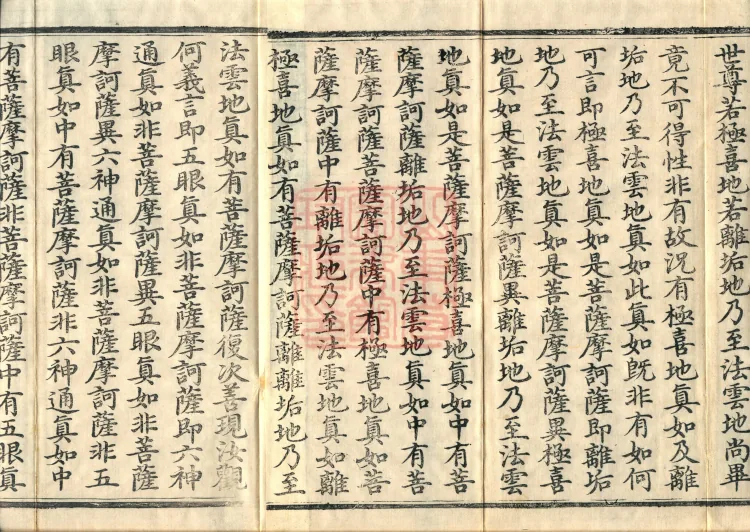 世尊若極喜地若離垢地乃至法雲地尚畢
竟不可得性非有故況有極喜地眞如及離
垢地乃至法雲地眞如此眞如既非有如何
可言即極喜地眞如是菩薩摩訶薩即離垢
地乃至法雲地眞如是菩薩摩訶薩異極喜
地眞如是菩薩摩訶薩異離垢地乃至法雲
地眞如是菩薩摩訶薩極喜地眞如中有菩
薩摩訶薩離垢地乃至法雲地眞如中有菩
薩摩訶薩菩薩摩訶薩中有極喜地眞如菩
薩摩訶薩中有離垢地乃至法雲地眞如離
極喜地眞如有菩薩摩訶薩離離垢地乃至
法雲地眞如有菩薩摩訶薩復次善現汝觀
何義言即五眼眞如非菩薩摩訶薩即六神
通眞如非菩薩摩訶薩異五眼眞如非菩薩
摩訶薩異六神通眞如非菩薩摩訶薩非五
眼眞如中有菩薩摩訶薩非六神通眞如中
有菩薩摩訶薩非菩薩摩訶薩中有五眼眞